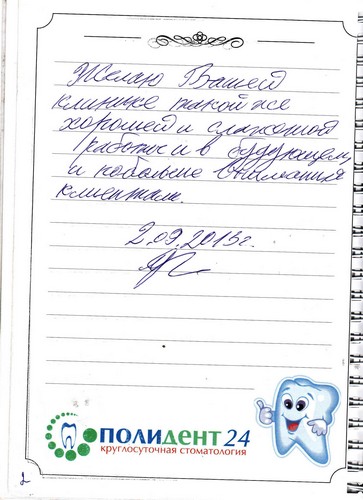 Желаю Вашей
клинике такой же
хорошей и слаженной
работы и в будующем,
и побольше внимания
клиентам.
2.09.2013г.
ПОЛИДЕНТ 24
круглосуточная стоматология